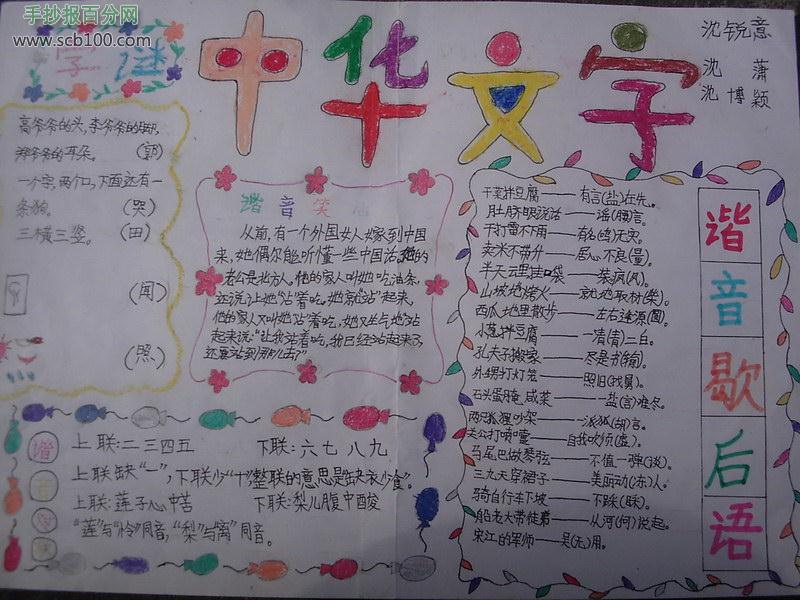 手抄报百分网
www.scb100.com
字谜
中华文字
沈锐意
沈萧
沈博颖
高爷爷的头,李爷爷的脚,
郑爷爷的耳朵。(郭)
一个字,两个口,下面还有一
条狗。(哭)
三横三竖。(田)
(闻)
(照)
谐音笑话
从前,有一个外国女人嫁到中国
来,她偶尔能听懂一些中国话,她的
老公是北方人。他的家人叫她吃油条,
还说:让她“沾”着吃,她就“站”起来,
他的家人又叫她“沾”着吃,她又生气地站
起来说:“让我站着吃,我已经站起来了
还要站到那儿去?”
干菜拌豆腐——有言(盐)在先。
肚脐眼说话——谣(腰)言。
干打雷不雨——有名(鸣)无实。
卖米不带升——居心不良(量)。
半天云里挂口袋——装疯(风)。
山坡地烧火——就地取材(柴)。
西瓜地里散步——左右逢源(圆)。
小葱拌豆腐——一清(青)二白。
孔夫子搬家——尽是书(输)。
外甥打灯笼——照旧(找舅)。
石头蛋腌咸菜——一盐(言)难尽。
两只狐狸吵架——一派狐(胡)言。
关公打喷嚏——自我吹须(虚)。
马尾巴做琴弦——不值一弹(谈)。
三九天穿裙子——美丽动(冻)人。
骑自行车下坡——不踩(睬)。
船老大带徒弟——从河(何)说起。
宋江的军师——吴(无)用。
谐音歇后语
谐音对
上联:二三四五 下联:六七八九
上联缺“一”,下联少“十”整联的意思是“缺衣少食”。
上联:莲子心中苦 下联:梨儿腹中酸
“莲”与“怜”同音,“梨”与“离”同音。